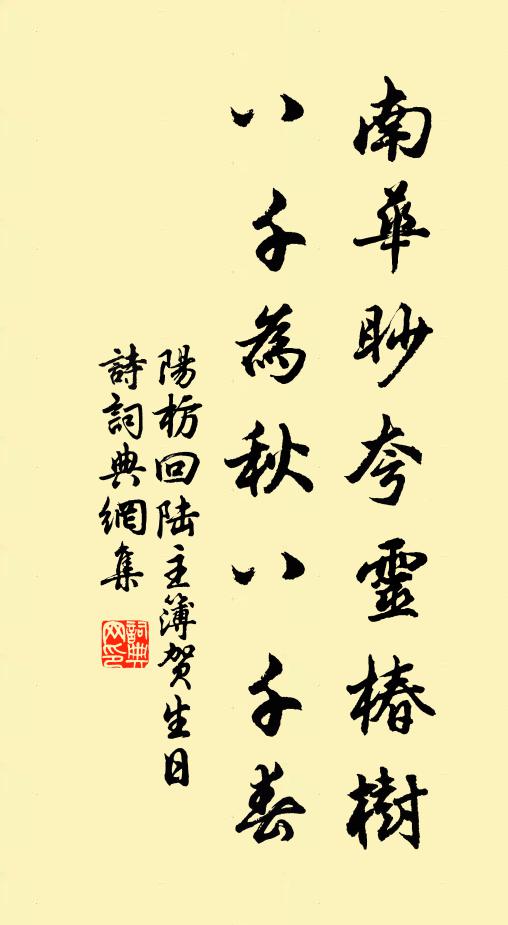 南華眇夸靈椿樹
八千為秋八千春
陽枋回陆主簿贺生日
詩詞典網集
詞典网印